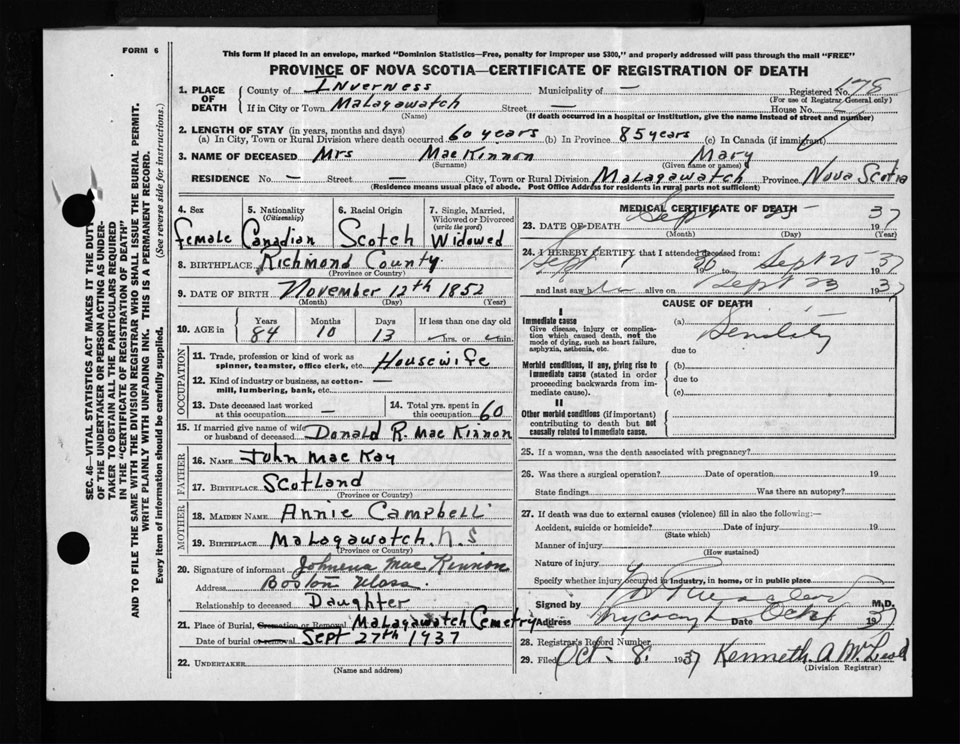 FORM 6
This form if placed in an envelope, marked "Dominion Statistics—Free, penalty for improper use $300," and properly addressed will pass through the mail "FREE"
PROVINCE OF NOVA SCOTIA—CERTIFICATE OF REGISTRATION OF DEATH
SEC. 46—VITAL STATISTICS ACT MAKES IT THE DUTY
OF THE UNDERTAKER OR PERSON ACTING AS UNDER-
TAKER TO OBTAIN ALL THE PARTICULARS REQUIRED
IN THE "CERTIFICATE OF REGISTRATION OF DEATH"
AND TO FILE THE SAME WITH THE DIVISION REGISTRAR WHO SHALL ISSUE THE BURIAL PERMIT.
WRITE PLAINLY WITH UNFADING INK. THIS IS A PERMANENT RECORD.
Every item of information should be carefully supplied. (See reverse side for instructions.)
1. PLACE OF DEATH County of Inverness Municipality of — Registered No. 178
(For use of Registrar General only)
If in City or Town Malagawatch Street — House No.
(Name) (If death occurred in a hospital or institution, give the name instead of street and number)
2. LENGTH OF STAY (in years, months and days)
(a) In City, Town or Rural Division where death occurred 60 years (b) In Province 85 years (c) In Canada (if immigrant)
3. NAME OF DECEASED Mrs MacKinnon Mary
(Surname) (Given name or names)
RESIDENCE No. — Street — City, Town or Rural Division Malagawatch Province Nova Scotia
(Residence means usual place of abode. Post Office Address for residents in rural parts not sufficient)
4. Sex female
5. Nationality (Citizenship) Canadian
6. Racial Origin Scotch
7. Single, Married, Widowed or Divorced (write the word) Widowed
8. BIRTHPLACE Richmond County
(Province or Country)
9. DATE OF BIRTH November 12th 1852
(Month) (Day) (Year)
10. AGE in Years 84 Months 10 Days 13 If less than one day old hrs. or min.
OCCUPATION
11. Trade, profession or kind of work as spinner, teamster, office clerk, etc. Housewife
12. Kind of industry or business, as cotton-mill, lumbering, bank, etc. —
13. Date deceased last worked at this occupation —
14. Total yrs. spent in this occupation 60
15. If married give name of wife or husband of deceased Donald R. MacKinnon
FATHER
16. NAME John MacKay
17. BIRTHPLACE Scotland
(Province or Country)
MOTHER
18. MAIDEN NAME Annie Campbell
19. BIRTHPLACE Malagawatch. N.S
(Province or Country)
20. Signature of informant Johnena MacKinnon
Address Boston Mass.
Relationship to deceased Daughter
21. Place of Burial, Cremation or Removal Malagawatch Cemetry
Date of burial or removal Sept 27th 1937
22. UNDERTAKER
(Name and address)
MEDICAL CERTIFICATE OF DEATH
23. DATE OF DEATH Sept 25 1937
(Month) (Day) (Year)
24. I HEREBY CERTIFY, that I attended deceased from:
Sept 1 to Sept 25 1937
and last saw h alive on Sept 23 1937
CAUSE OF DEATH
I
Immediate cause
Give disease, injury or complication which caused death, not the mode of dying, such as heart failure, asphyxia, asthenia, etc.
(a) Senility
due to
Morbid conditions, if any, giving rise to immediate cause (stated in order proceeding backwards from immediate cause).
(b)
due to
(c)
II
Other morbid conditions (if important) contributing to death but not causally related to immediate cause.
25. If a woman, was the death associated with pregnancy?
26. Was there a surgical operation? Date of operation 19
State findings Was there an autopsy?
27. If death was due to external causes (violence) fill in also the following:—
Accident, suicide or homicide? Date of injury 19
(State which)
Manner of injury
(How sustained)
Nature of injury
Specify whether injury occurred in industry, in home, or in public place
Signed by M.D.
Address Date Oct 1937
28. Registrar's Record Number
29. Filed Oct. 8. 1937 Kenneth A McLeod
(Division Registrar)